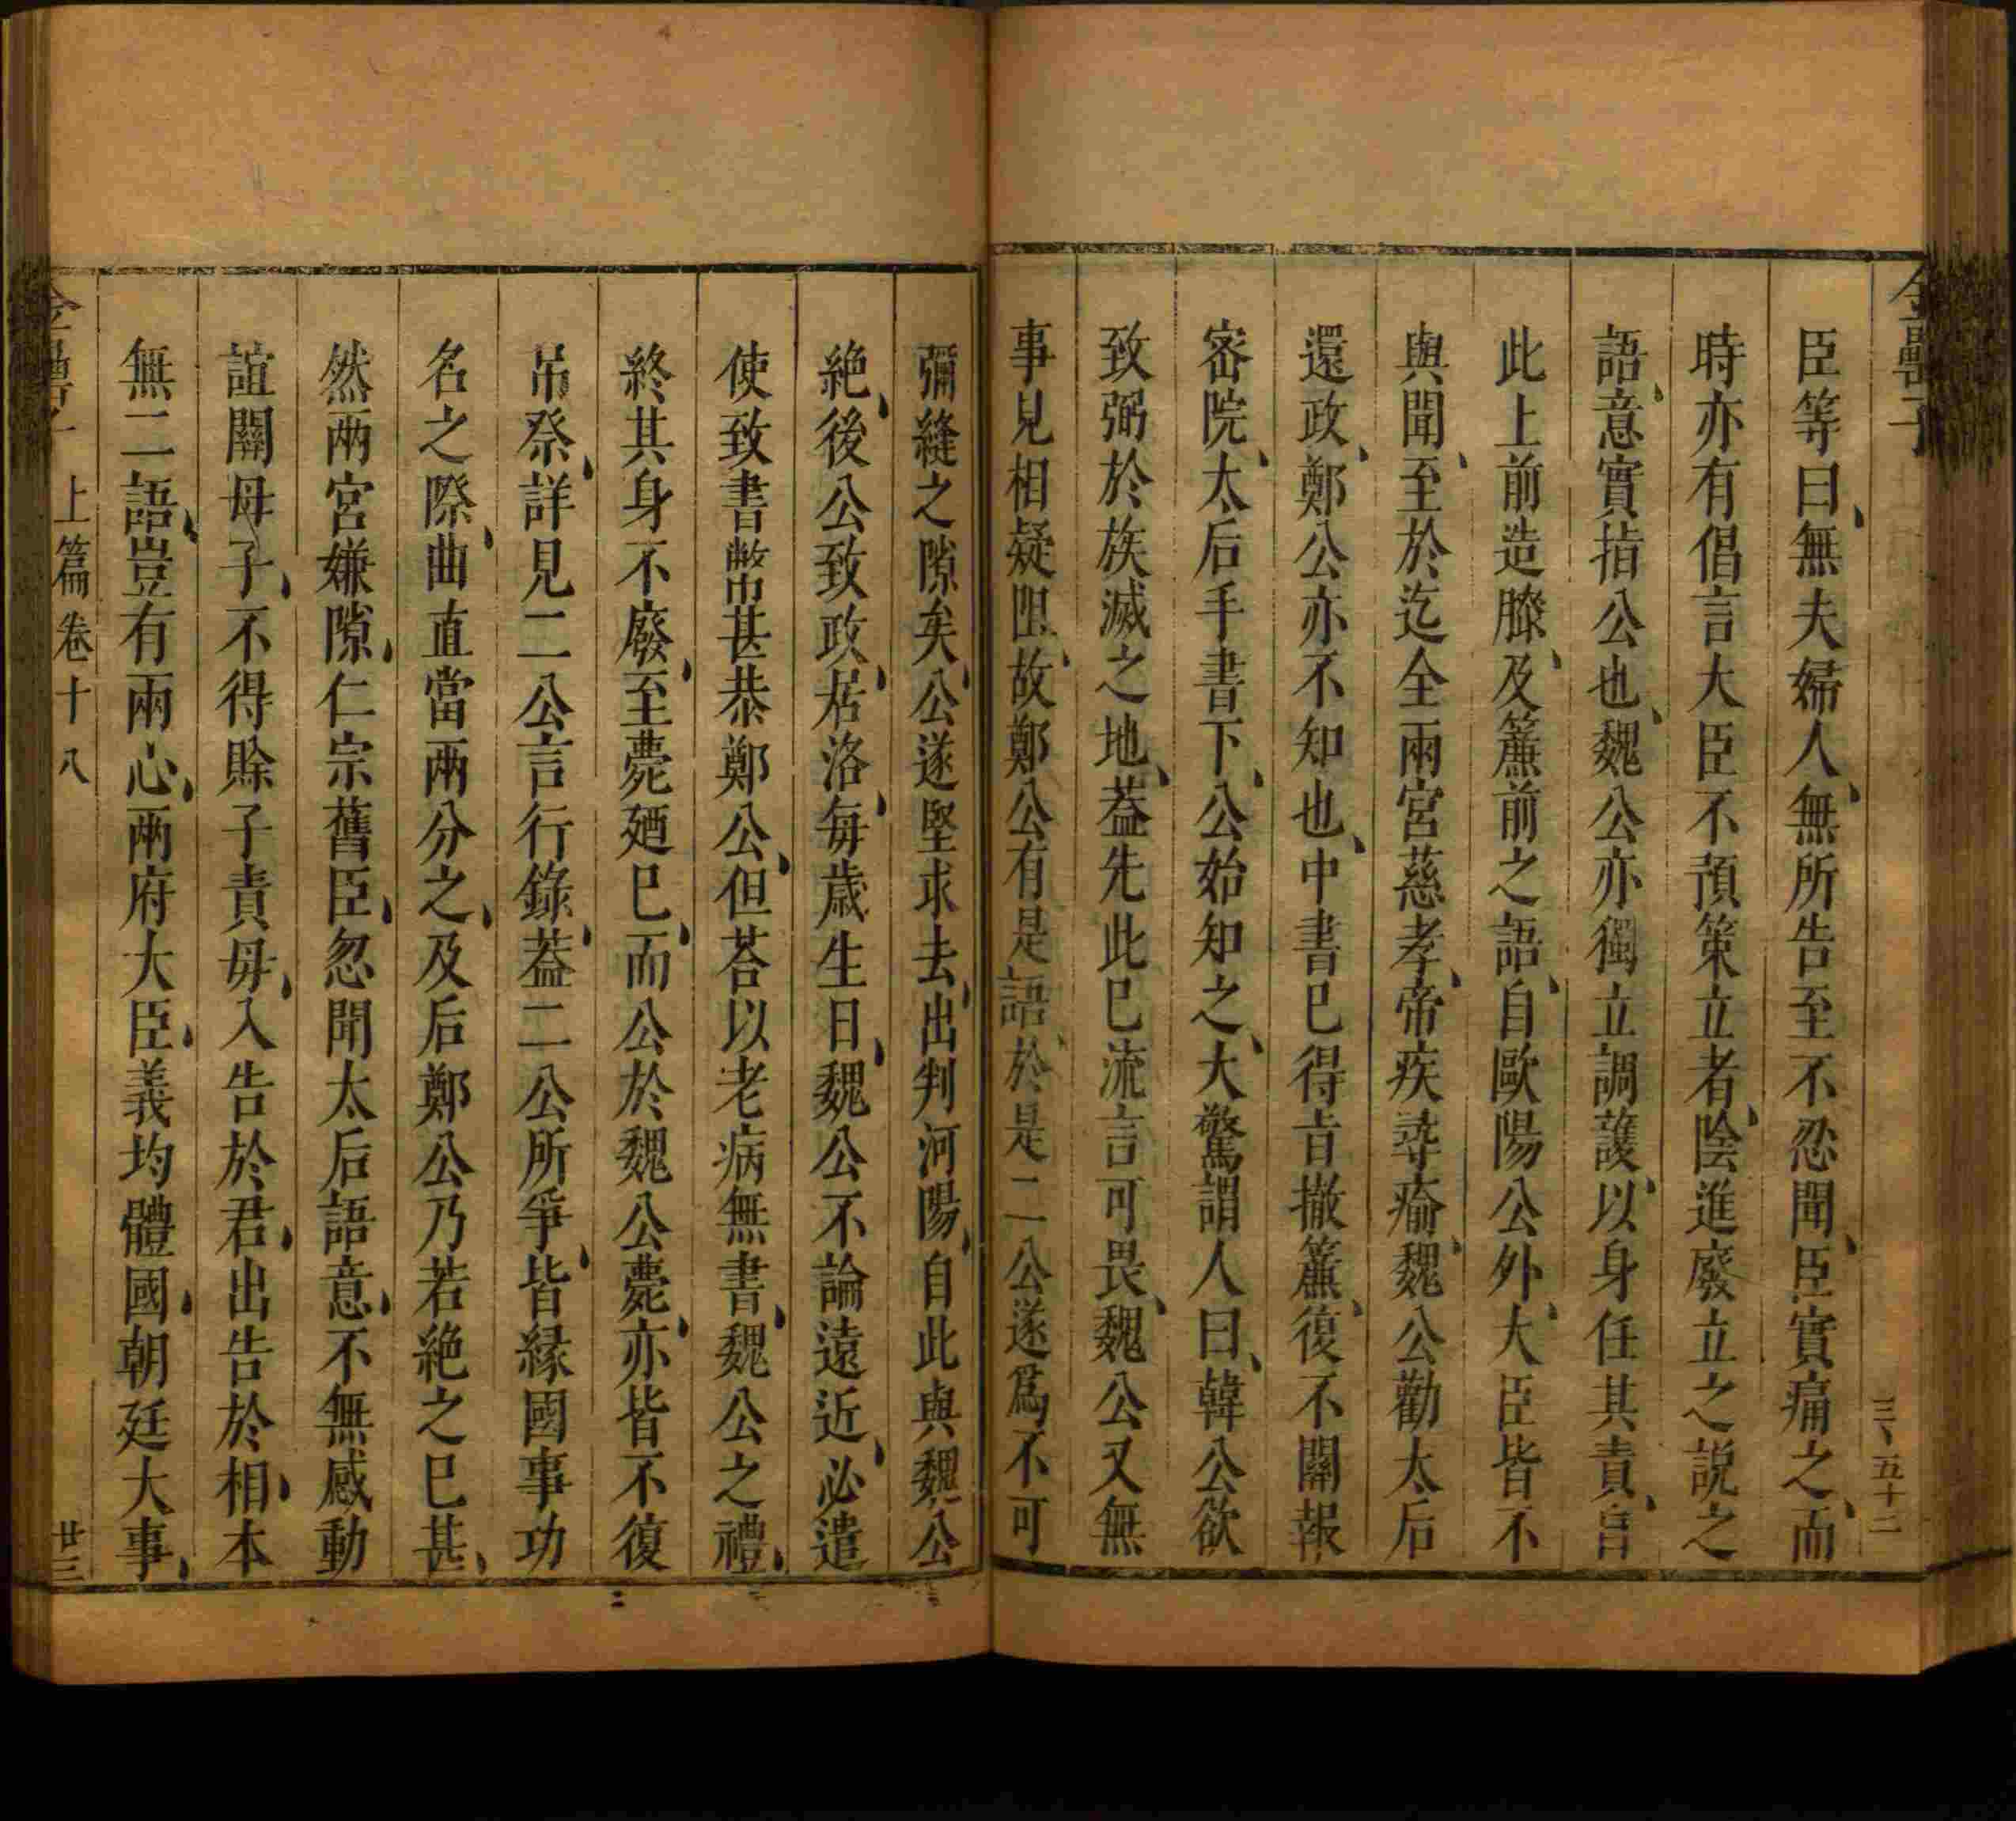 金罍子
三、五十二
臣等曰、無夫婦人、無所告至不忍聞、臣實痛之、而
時亦有倡言大臣不預策立者、陰進廢立之説之
語、意實指公也、魏公亦獨立調護、以身任其責、旨
此上前造膝、及簾前之語、自歐陽公外、大臣皆不
與聞、至於迄全兩宮慈孝、帝疾尋瘉、魏公勸太后
還政、鄭公亦不知也、中書已得旨撤簾、復不關報
宻院、太后手書下、公始知之、大驚謂人曰、韓公欲
致弼於族滅之地、葢先此已流言可畏、魏公又無
事見相疑阻、故鄭公有是語、於是二公遂爲不可
彌縫之隙矣、公遂堅求去、出判河陽、自此與魏公
絶、後公致政、居洛、每歲生日、魏公不論遠近、必遣
使致書幣甚恭鄭公、但荅以老病無書、魏公之禮、
終其身不廢、至薨廼已、而公於魏公薨、亦皆不復
吊祭、詳見二公言行錄、葢二公所爭、皆緣國事功
名之際、曲直當兩分之、及后鄭公乃若絶之已甚、
然兩宮嫌隙、仁宗舊臣、忽聞太后語意、不無感動
誼關母子、不得賒子責母、入告於君、出告於相、本
無二語、豈有兩心、兩府大臣、義均體國、朝廷大事、
金罍子 上篇卷十八 廿三